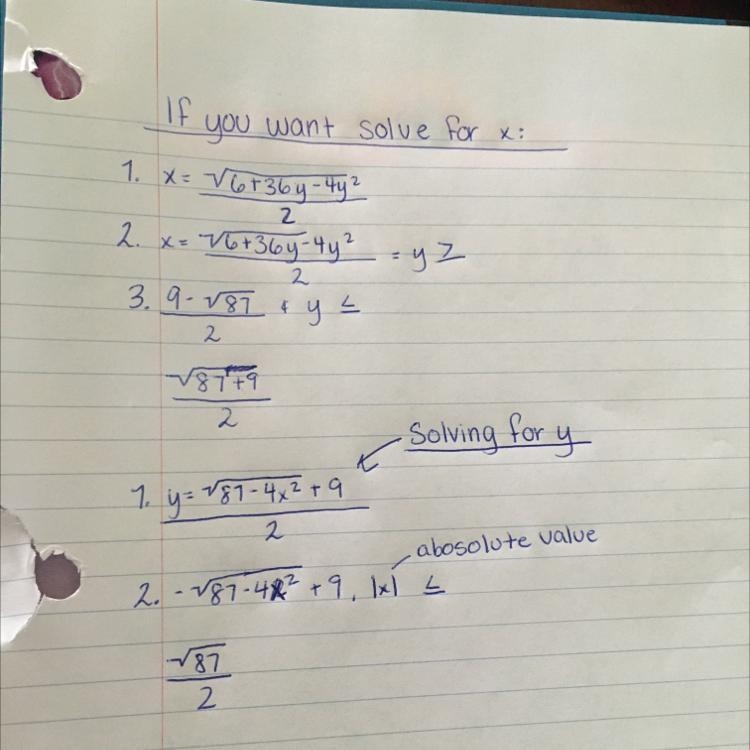 If you want solve for x:
1. x = √6+36y-4y²
2
2. x = √6+36y-4y² = y ≥
2
3. 9-√87 & y ≤
2
√87+9
2
Solving for y
1. y = √87-4x² + 9
2
abosolute value
2. -√87-4x² + 9, |x| ≤
√87
2